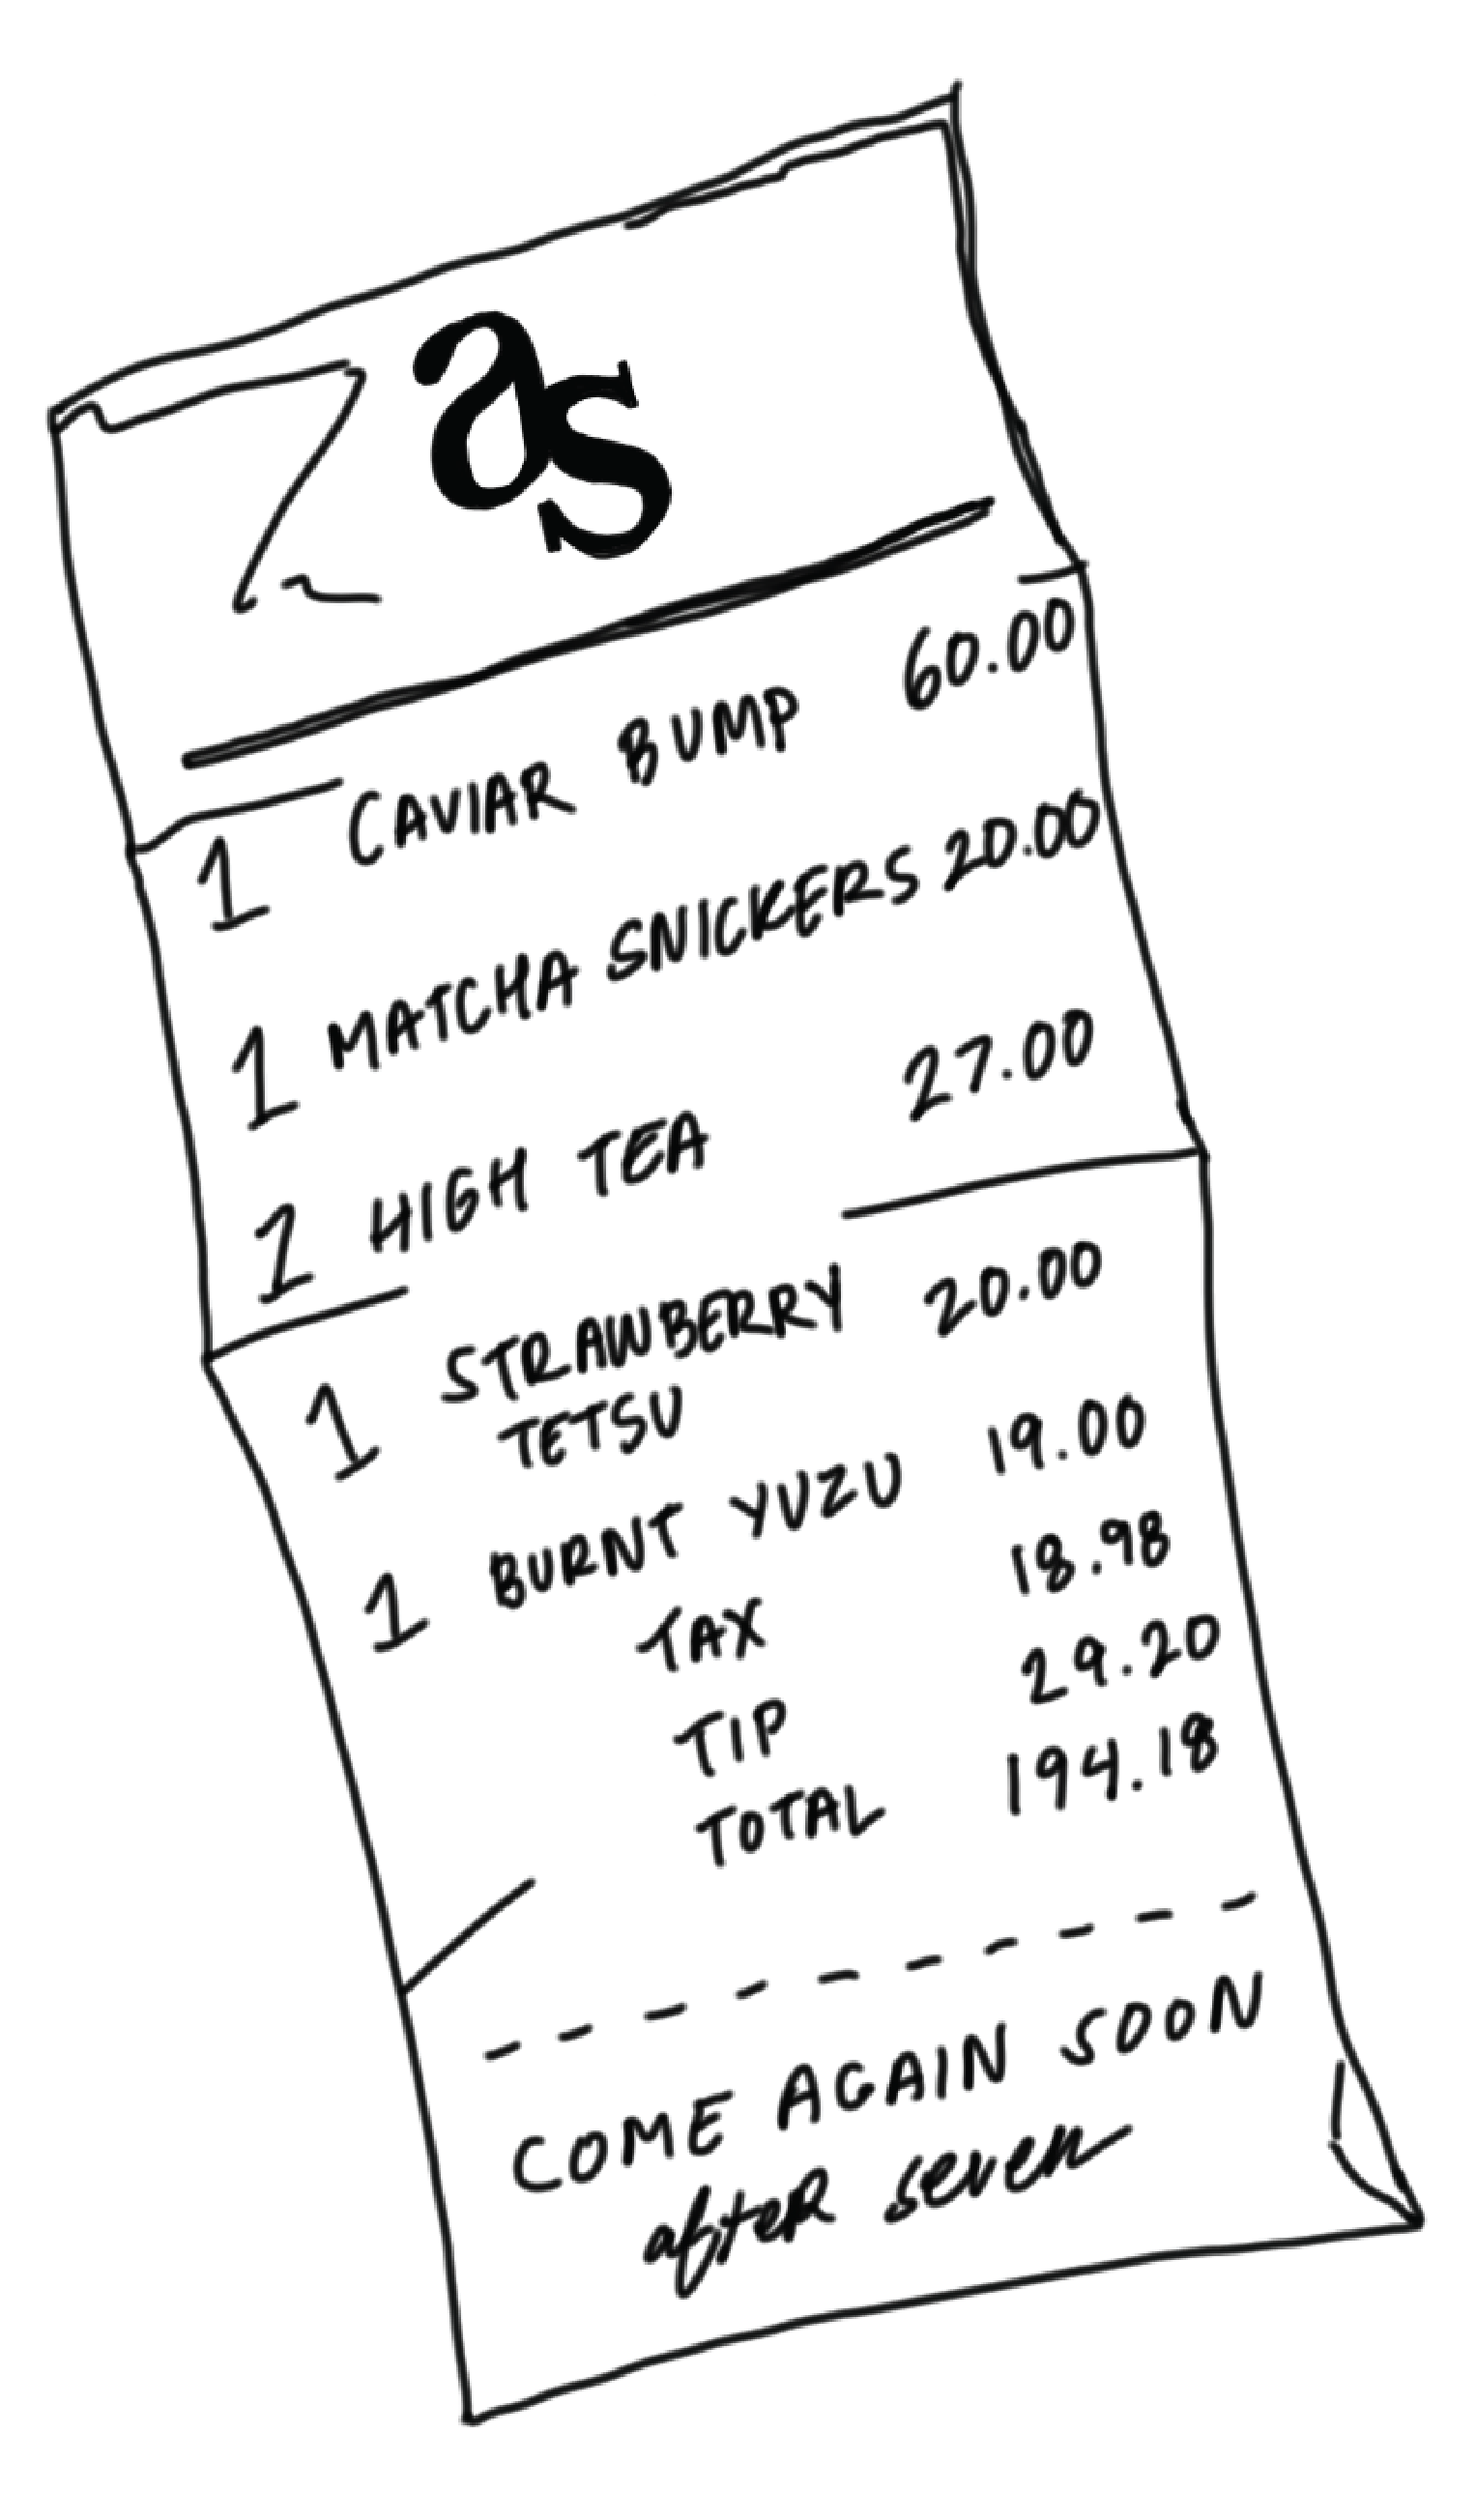 as
1 CAVIAR BUMP 60.00
1 MATCHA SNICKERS 20.00
1 HIGH TEA 27.00
1 STRAWBERRY 20.00
TETSU
1 BURNT YUZU 19.00
TAX 18.98
TIP 29.20
TOTAL 194.18
COME AGAIN SOON
after seven